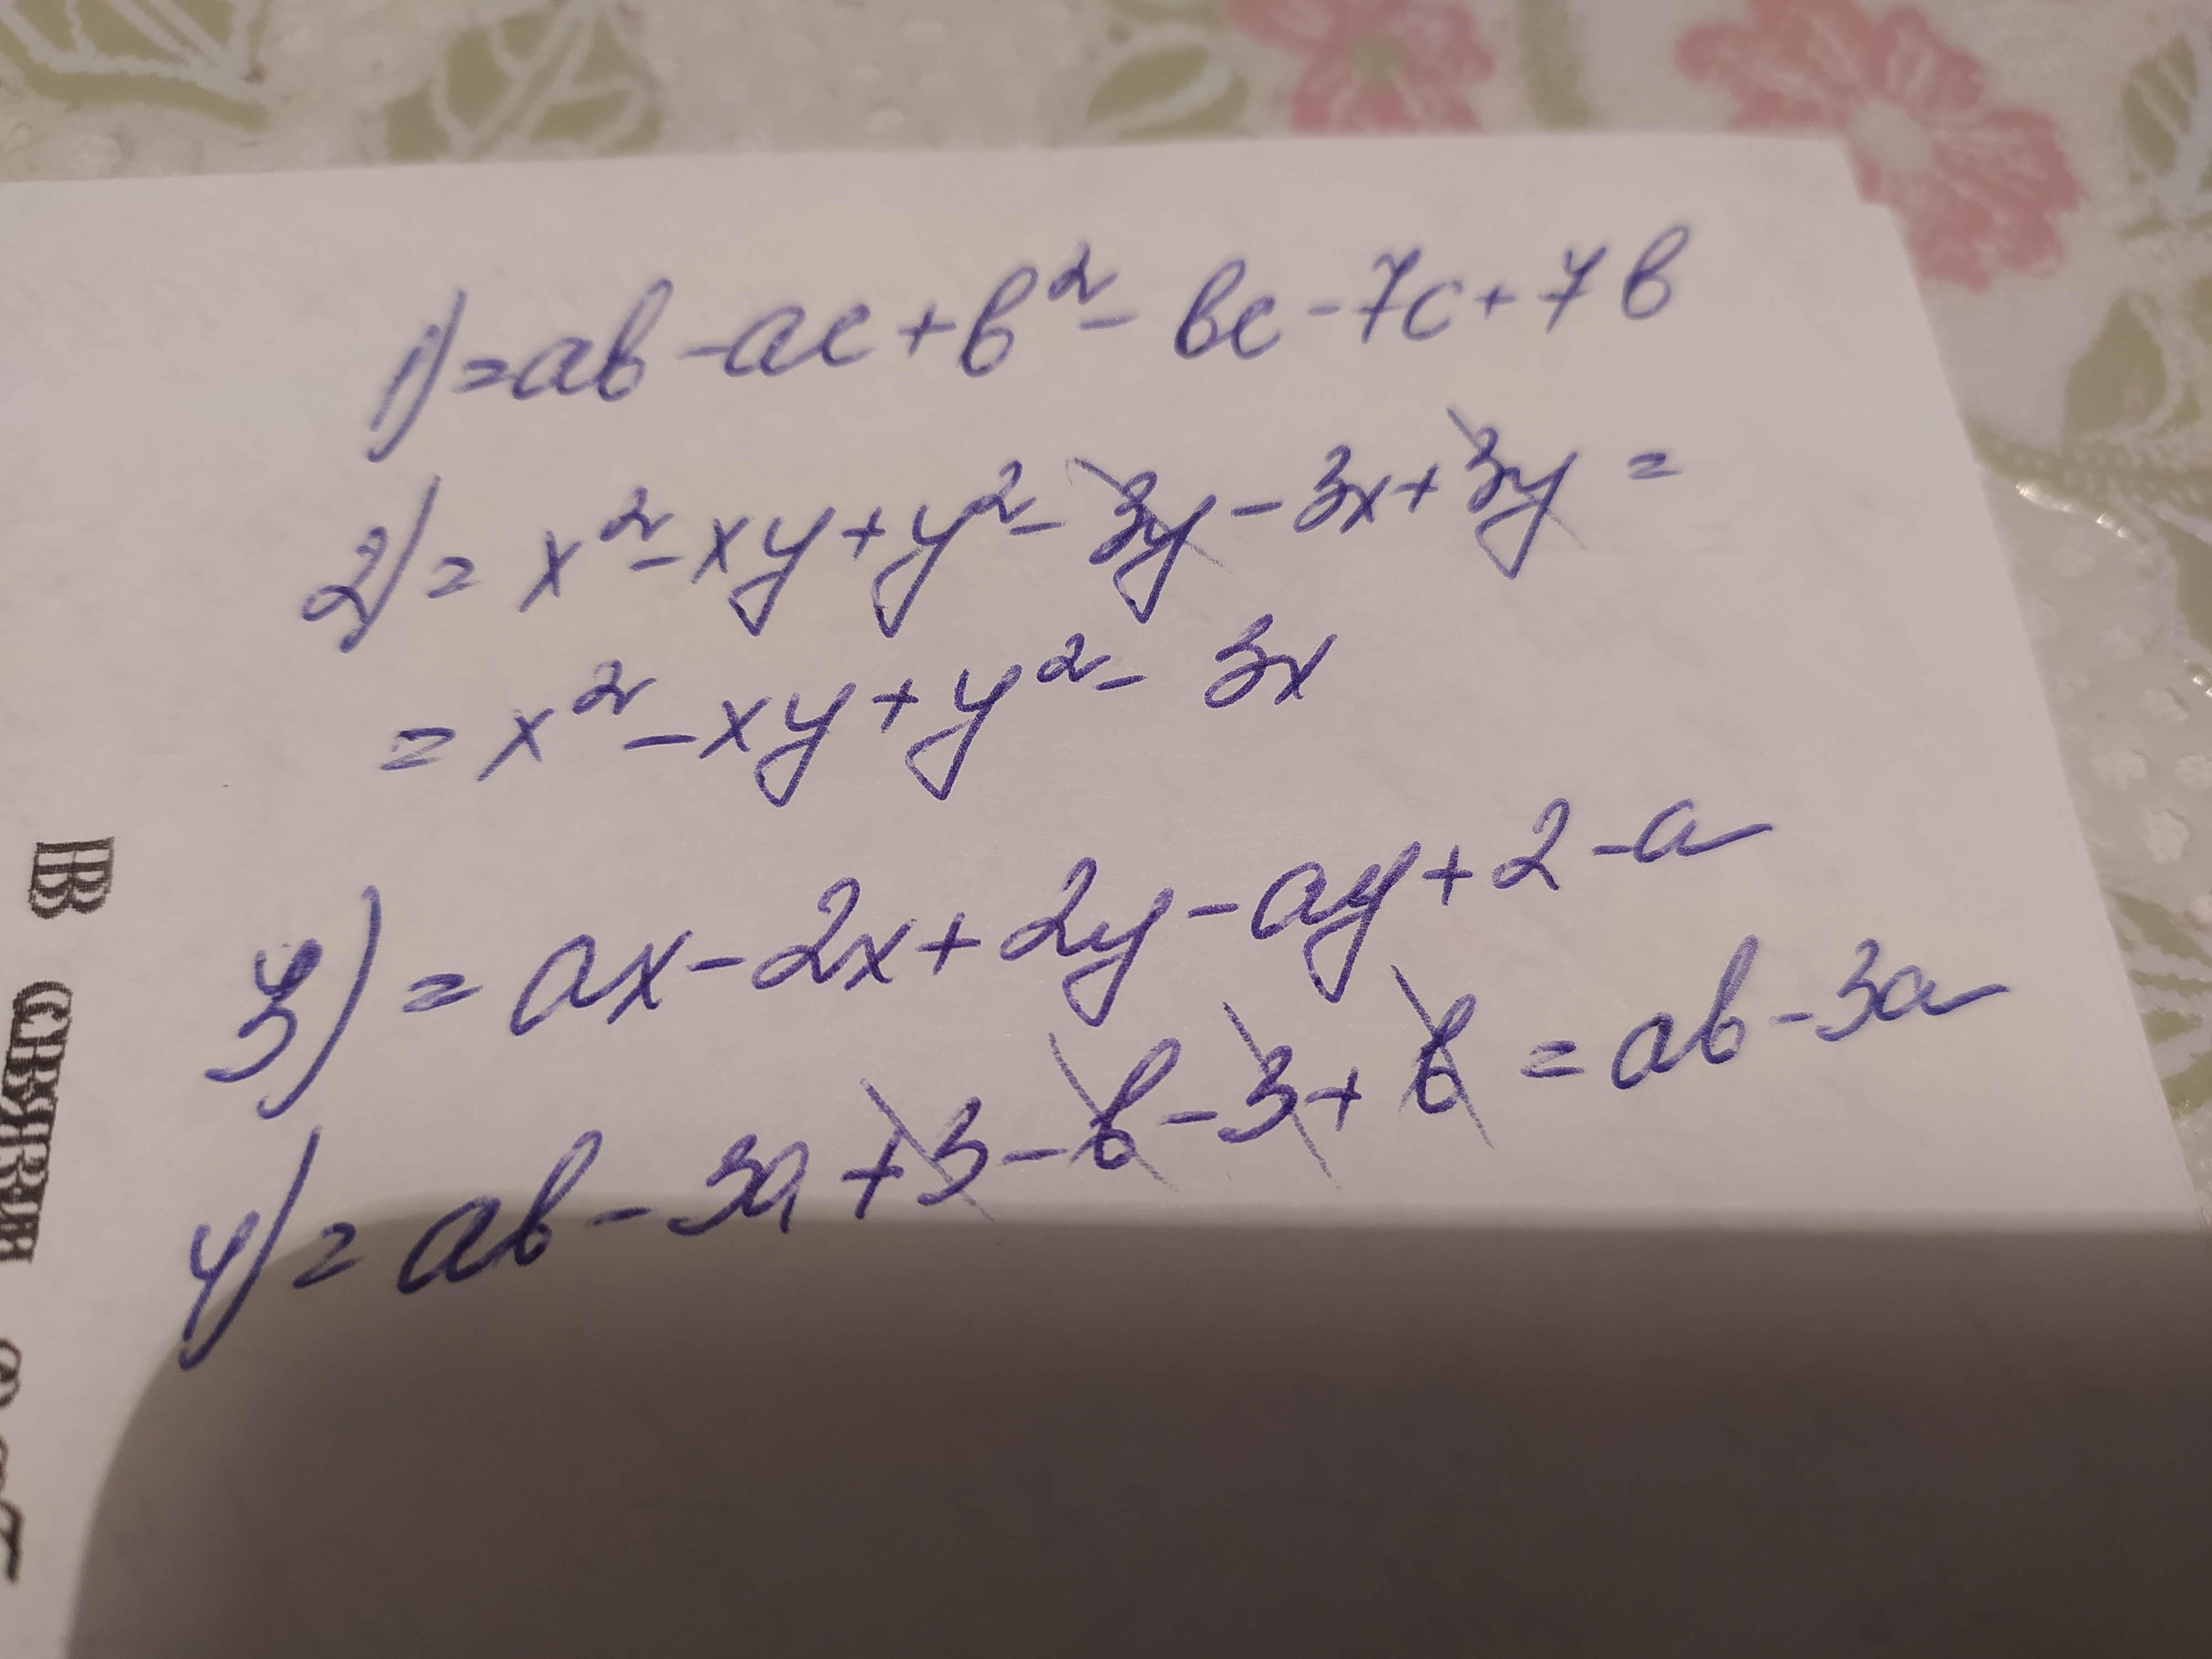 1) = ab - ac + b² - bc - 7c + 7b
2) = x² - xy + y² - 3y - 3x + 3y =
= x² - xy + y² - 3x
3) = ax - 2x + 2y - ay + 2 - a
4) = ab - 3a + 3 - b - 3 + b = ab - 3a
В